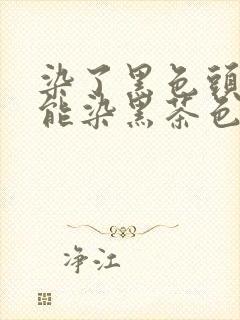 染了黑色頭
能染黑茶色
净江